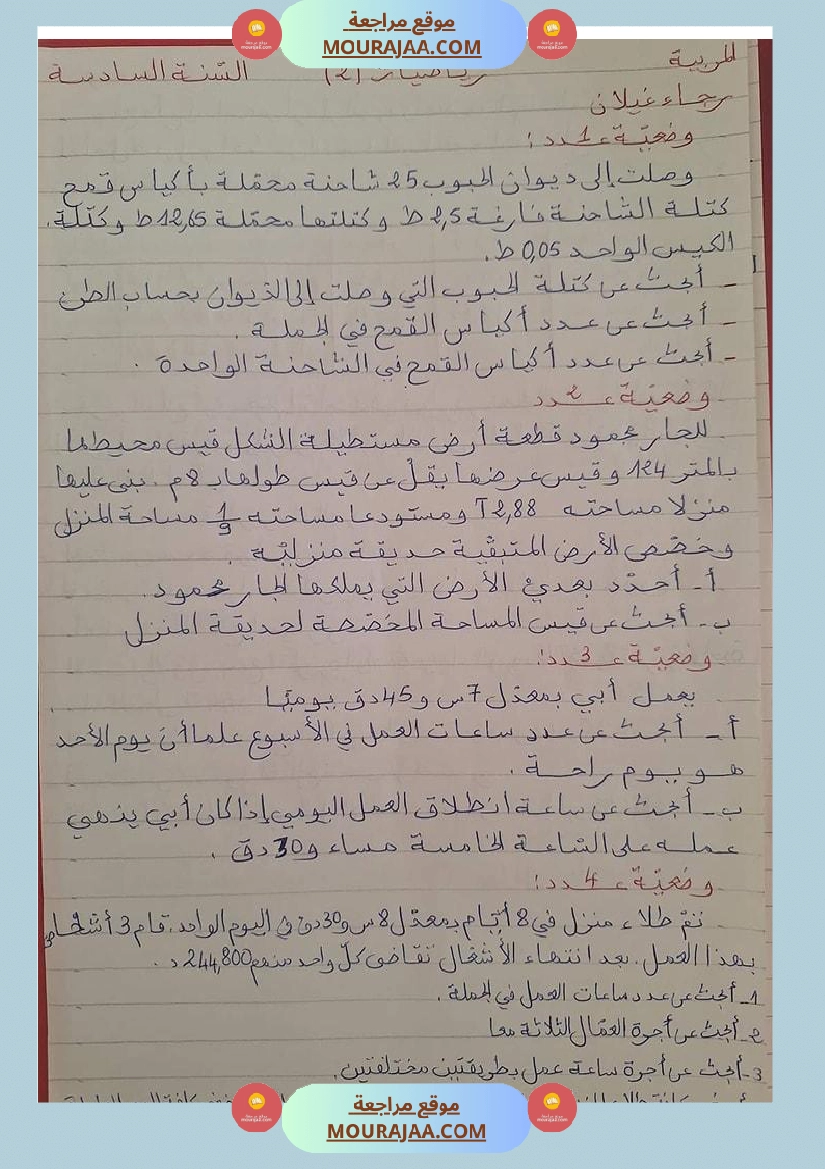 موقع مراجعة
MOURAJAA.COM
المربية رياضيات (2) السّنة السادسة
رجاء غيلان
وضعيّة عـ1ـدد:
وصلت إلى ديوان الحبوب 25 شاحنة محمّلة بأكياس قمح
كتلة الشاحنة فارغة 2,5 ط وكتلتها محمّلة 12,65 ط وكتلة
الكيس الواحد 0,05 ط.
- أبحث عن كتلة الحبوب التي وصلت إلى الدّيوان بحساب الطن
- أبحث عن عدد أكياس القمح في الجملة.
- أبحث عن عدد أكياس القمح في الشاحنة الواحدة.
وضعيّة عـ2ـدد
للجار محمود قطعة أرض مستطيلة الشكل قيس محيطها
بالمتر 124 وقيس عرضها يقلّ عن قيس طولها بـ 8م. بنى عليها
منزلا مساحته 2,88 آ ومستودعا مساحته 1/9 مساحة المنزل
وخصّص الأرض المتبقّية حديقة منزليّة.
أ- أحدّد بعديْ الأرض التي يملكها الجار محمود.
ب- أبحث عن قيس المساحة المخصّصة لحديقة المنزل
وضعيّة عـ3ـدد:
يعمل أبي بمعدّل 7س و45دق يوميّا
أ- أبحث عن عدد ساعات العمل في الأسبوع علما أن يوم الأحد
هو يوم راحة.
ب- أبحث عن ساعة انطلاق العمل اليومي إذا كان أبي ينهي
عمله على السّاعة الخامسة مساء و30دق.
وضعيّة عـ4ـدد:
تمّ طلاء منزل في 8 أيّام بمعدّل 8س و30دق في اليوم الواحد. قام 3 أشخاص
بهذا العمل. بعد انتهاء الأشغال تقاضى كلّ واحد منهم 244,800د.
1- أبحث عن عدد ساعات العمل في الجملة.
2- أبحث عن أجرة العمّال الثلاثة معا
3- أبحث عن أجرة ساعة عمل بطريقتين مختلفتين.
موقع مراجعة
MOURAJAA.COM